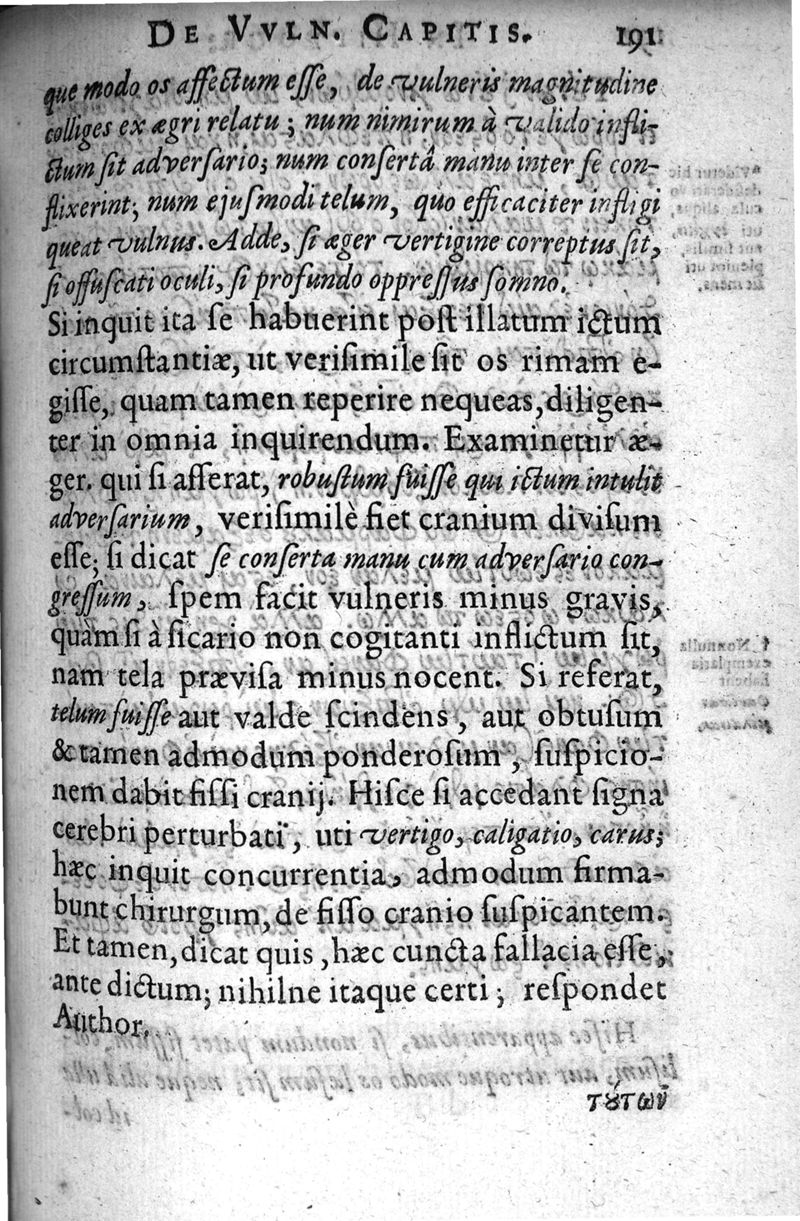 DE VVLN. CAPITIS. 191
que modo os affectum esse, de vulneris magnitudine
colliges ex ægri relatu; num nimirum à valido infli-
ctum sit adversario; num consertâ manu inter se con-
flixerint; num ejusmodi telum, quo efficaciter infligi
queat vulnus. Adde, si æger vertigine correptus sit,
si offuscati oculi, si profundo oppressus somno.
Si inquit ita se habuerint post illatum ictum
circumstantiæ, ut verisimile sit os rimam e-
gisse, quam tamen reperire nequeas, diligen-
ter in omnia inquirendum. Examinetur æ-
ger. qui si asserat, robustum fuisse qui ictum intulit
adversarium, verisimilè fiet cranium divisum
esse; si dicat se conserta manu cum adversario con-
gressum, spem facit vulneris minus gravis,
quàm si à sicario non cogitanti inflictum sit,
nam tela prævisa minus nocent. Si referat,
telum fuisse aut valde scindens, aut obtusum
& tamen admodum ponderosum, suspicio-
nem dabit fissi cranij. Hisce si accedant signa
cerebri perturbati, uti vertigo, caligatio, carus;
hæc inquit concurrentia, admodum firma-
bunt chirurgum, de fisso cranio suspicantem.
Et tamen, dicat quis, hæc cuncta fallacia esse,
ante dictum; nihilne itaque certi; respondet
Author.
τȣ́των